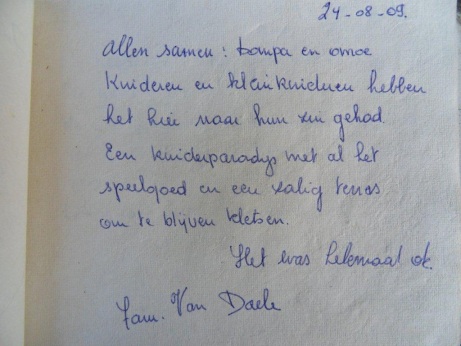 24-08-09.
Allen samen: bompa en omoe
Kinderen en kleinkinderen hebben
het hier naar hun zin gehad.
Een kinderparadijs met al het
speelgoed en een zalig terras
om te blijven kletsen.
Het was helemaal ok.
Fam. Van Daele